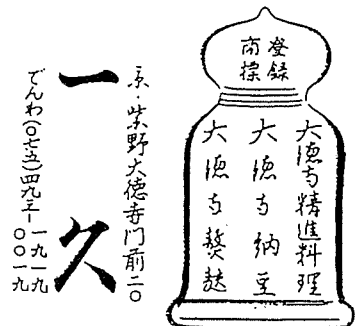 登録
商標
大徳寺精進料理
大徳寺納豆
大徳寺麩
京・紫野大徳寺門前二〇
一久
でんわ(〇七五)四九三―一九一九
〇〇一九